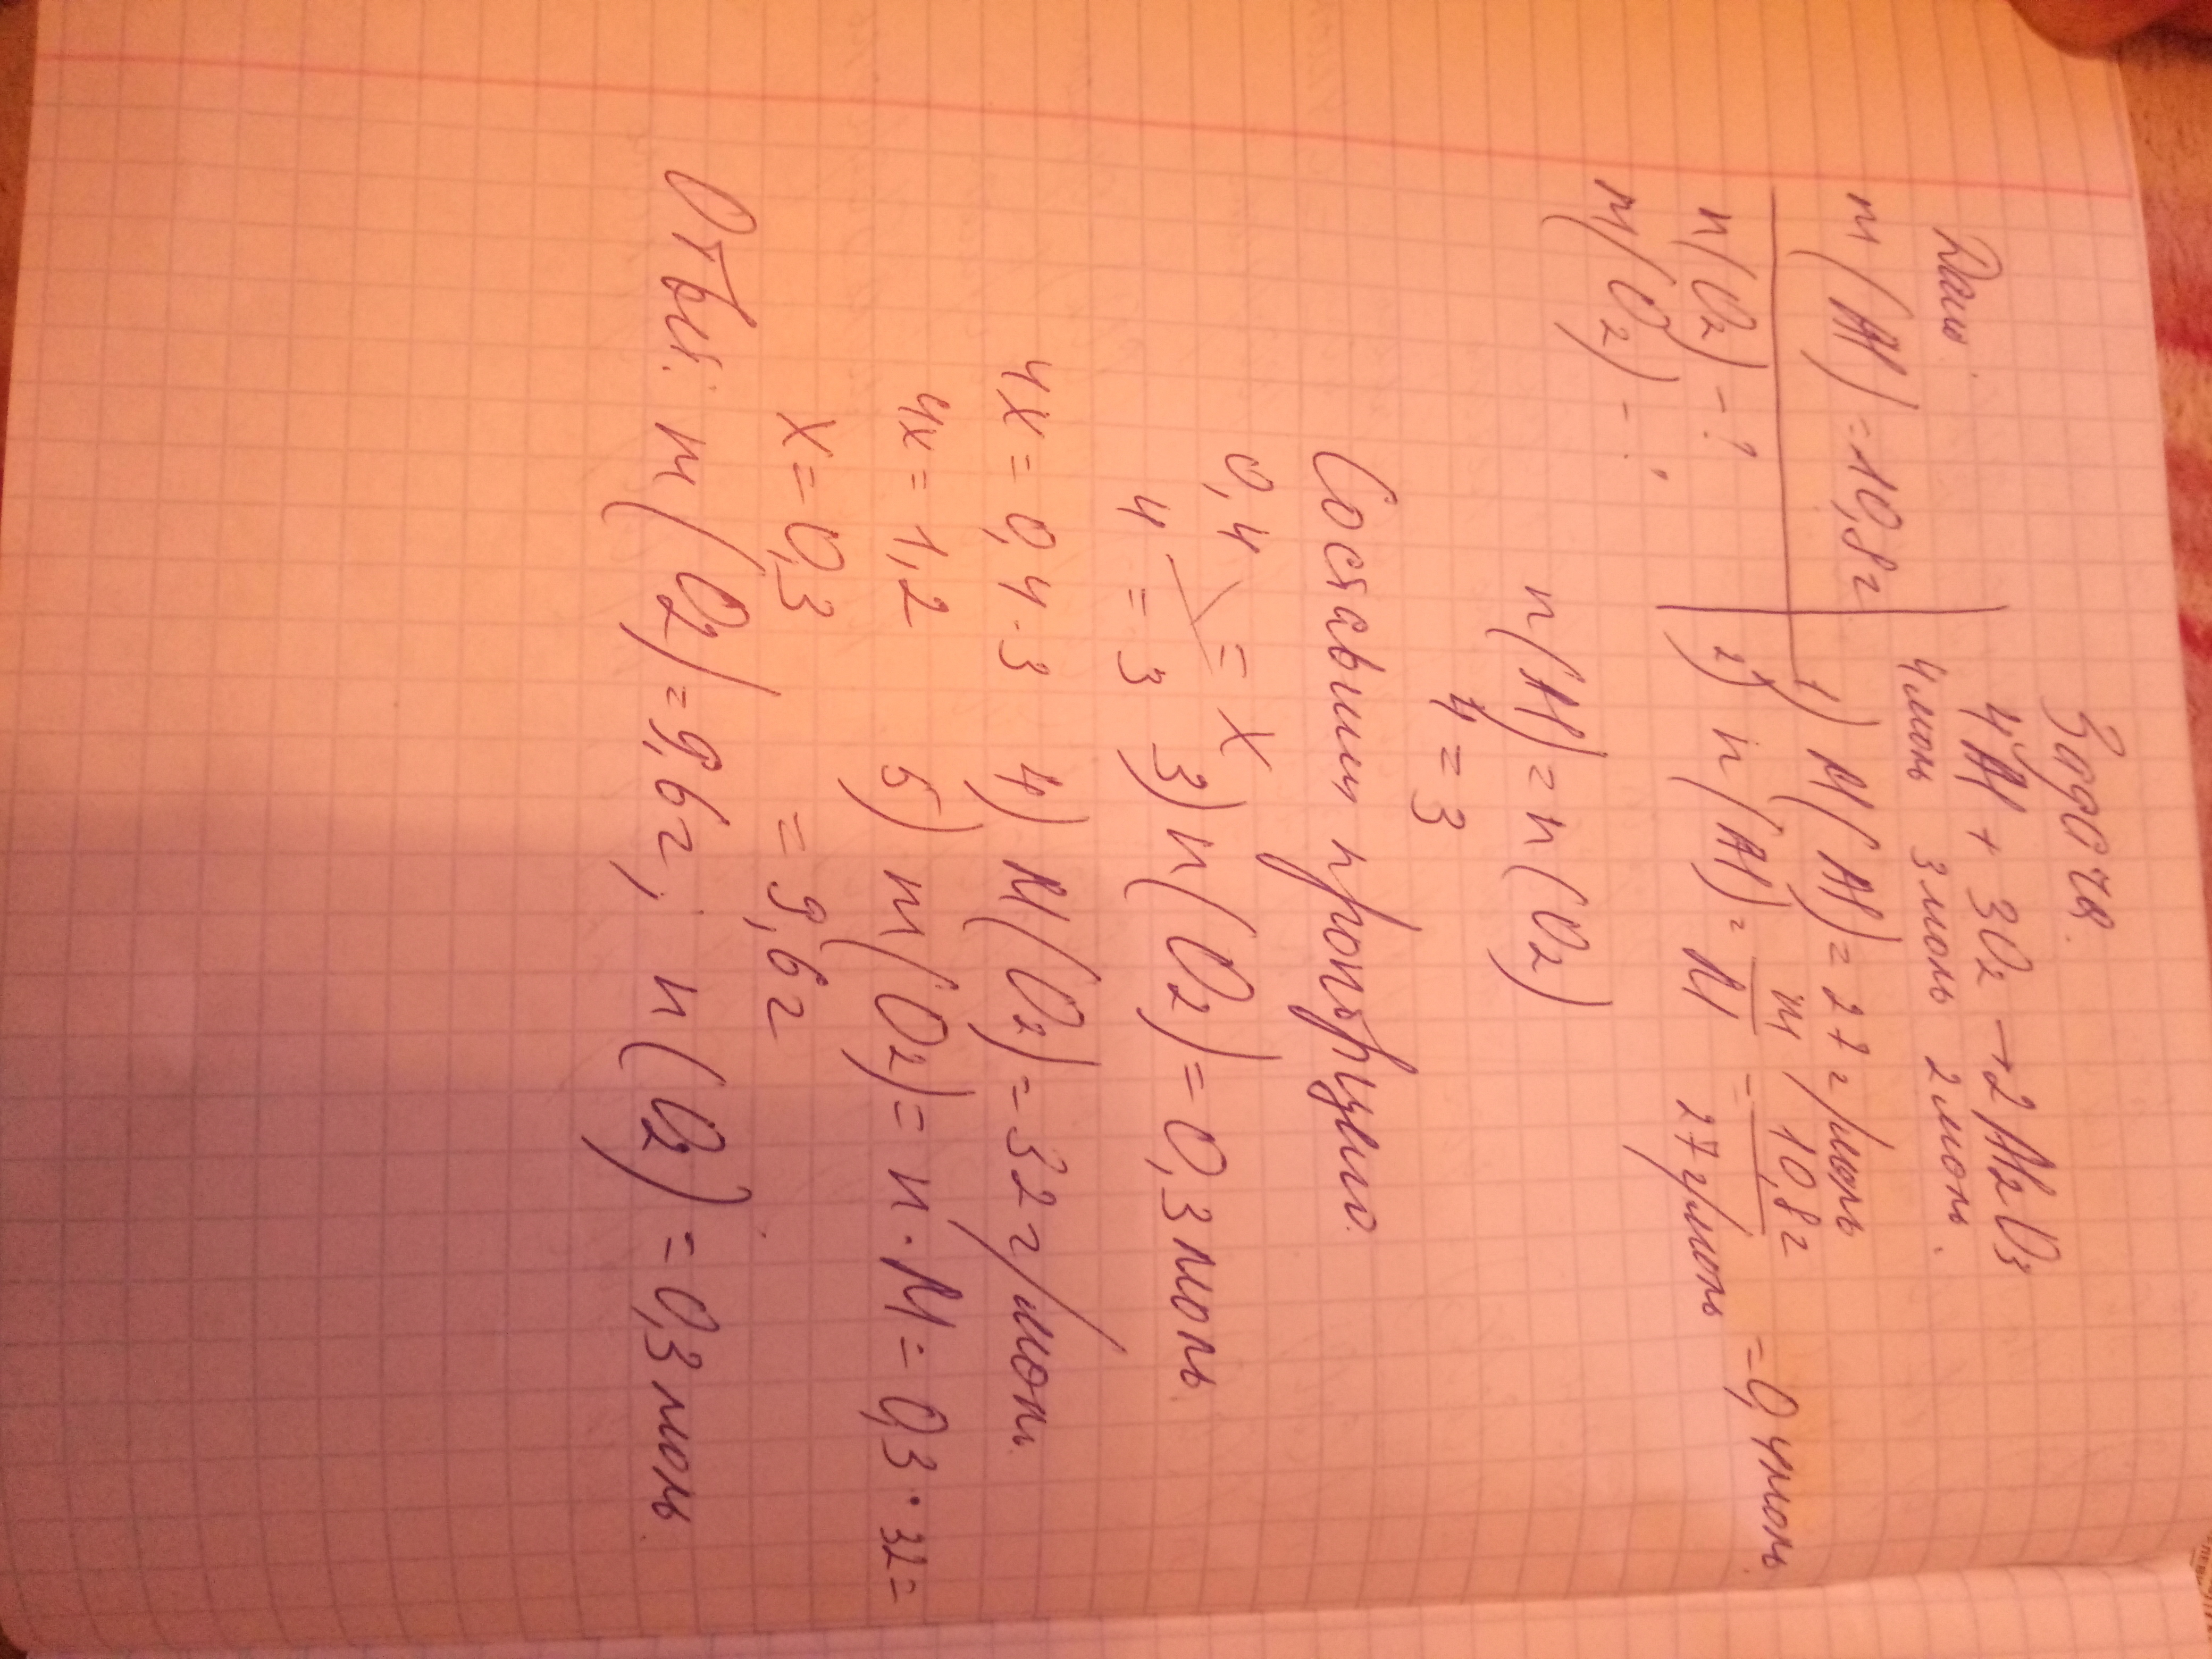 Задача.
Дано:
4Al + 3O₂ → 2Al₂O₃
4моль 3моль 2моль.
m(Al) = 10,8г
1) M(Al) = 27г/моль
n(O₂) - ?
2) n(Al) = m/M = 10,8г/27г/моль = 0,4моль.
m(O₂) - ?
n(Al) = n(O₂)
4 = 3
Составим пропорцию.
0,4 = x
4 = 3
3) n(O₂) = 0,3моль.
4x = 0,4·3
4) M(O₂) = 32г/моль.
4x = 1,2
5) m(O₂) = n·M = 0,3·32=
x = 0,3
= 9,6г
Ответ: m(O₂) = 9,6г; n(O₂) = 0,3моль.